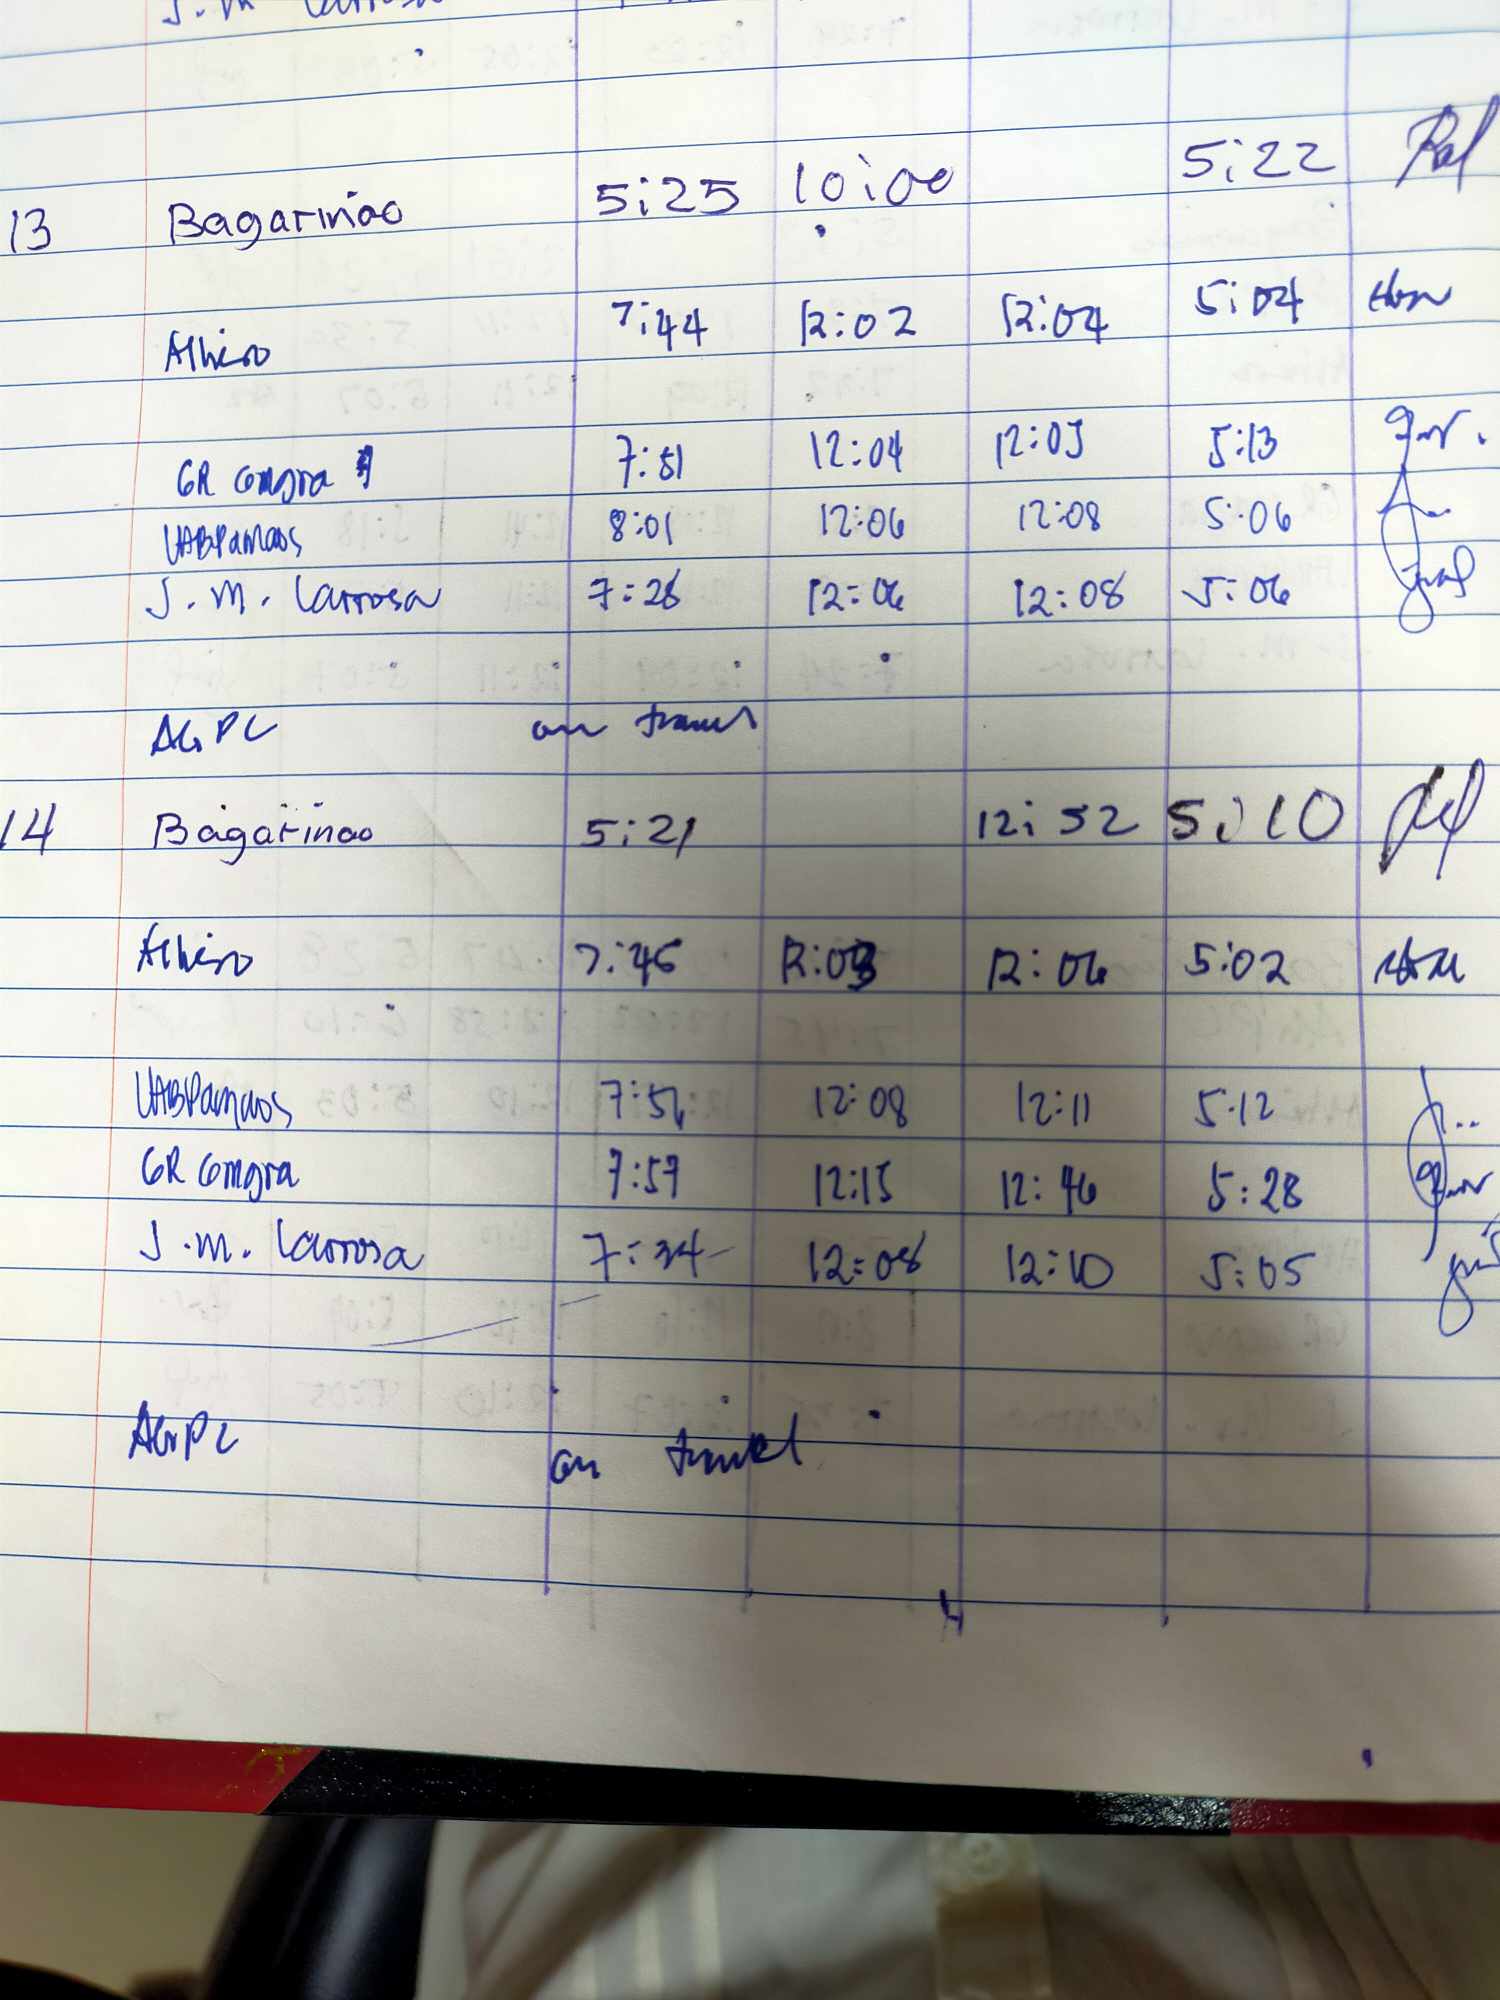 J. M Larrosa
13 Bagarinao 5:25 10:00 5:22
Albino 7:44 12:02 12:04 5:04
GR Congra 7:51 12:04 12:05 5:13
VABPamaos 8:01 12:06 12:08 5:06
J. M. Larrosa 7:28 12:06 12:08 5:06
AGPC on travel
14 Bagarinao 5:21 12:52 5:10
Albino 7:45 12:03 12:06 5:02
VABPamaos 12:08 12:11 5:12
GR Congra 7:57 12:15 12:46 5:28
J.M. Larrosa 7:34 12:08 12:10 5:05
AGPC on travel